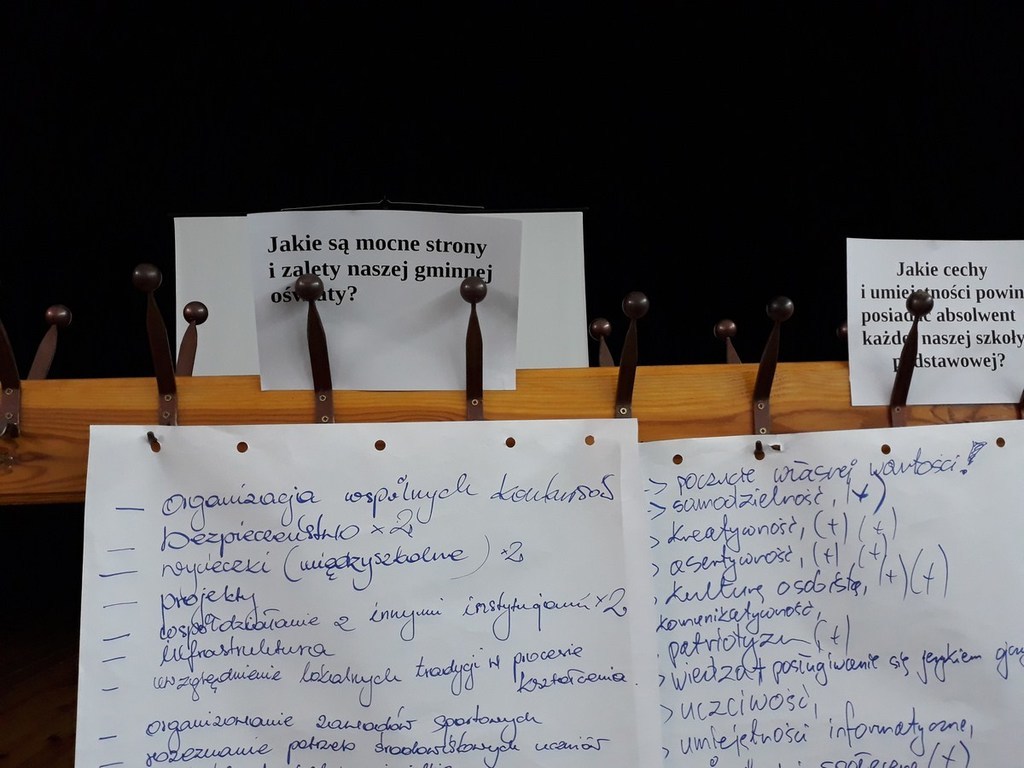 Jakie są mocne strony
i zalety naszej gminnej
oświaty?
Jakie cechy
i umiejętności powin
posiadać absolwent
każdej naszej szkoły
podstawowej?
— organizacja wspólnych konkursów
— bezpieczeństwo x 2
— wycieczki (międzyszkolne) x2
— projekty
— współdziałanie z innymi instytucjami x2
— infrastruktura
— uwzględnienie lokalnych tradycji w procesie
kształcenia.
organizowanie zawodów sportowych
rozeznanie potrzeb środowiskowych uczniów
-> poczucie własnej wartości!
-> samodzielność, (+)
> kreatywność, (+) (+)
> asertywność, (+) (+)
kulturę osobistą, (+) (+)
komunikatywność,
patriotyzm (+)
> wiedza + posługiwanie się językiem
> uczciwość,
> umiejętności informatyczne,
(+)